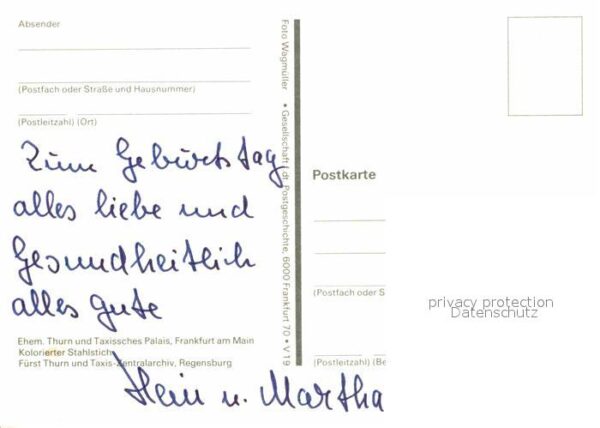 Absender
(Postfach oder Straße und Hausnummer)
(Postleitzahl) (Ort)
Zum Geburtstag
alles liebe und
Gesundheitlich
alles gute
Ehem. Thurn und Taxissches Palais, Frankfurt am Main
Kolorierter Stahlstich
Fürst Thurn und Taxis-Zentralarchiv, Regensburg
Hein u. Martha
Foto Wagmüller • Gesellschaft f. dt. Postgeschichte, 6000 Frankfurt 70 • V 19
Postkarte
(Postfach oder S
(Postleitzahl) (Be
privacy protection
Datenschutz